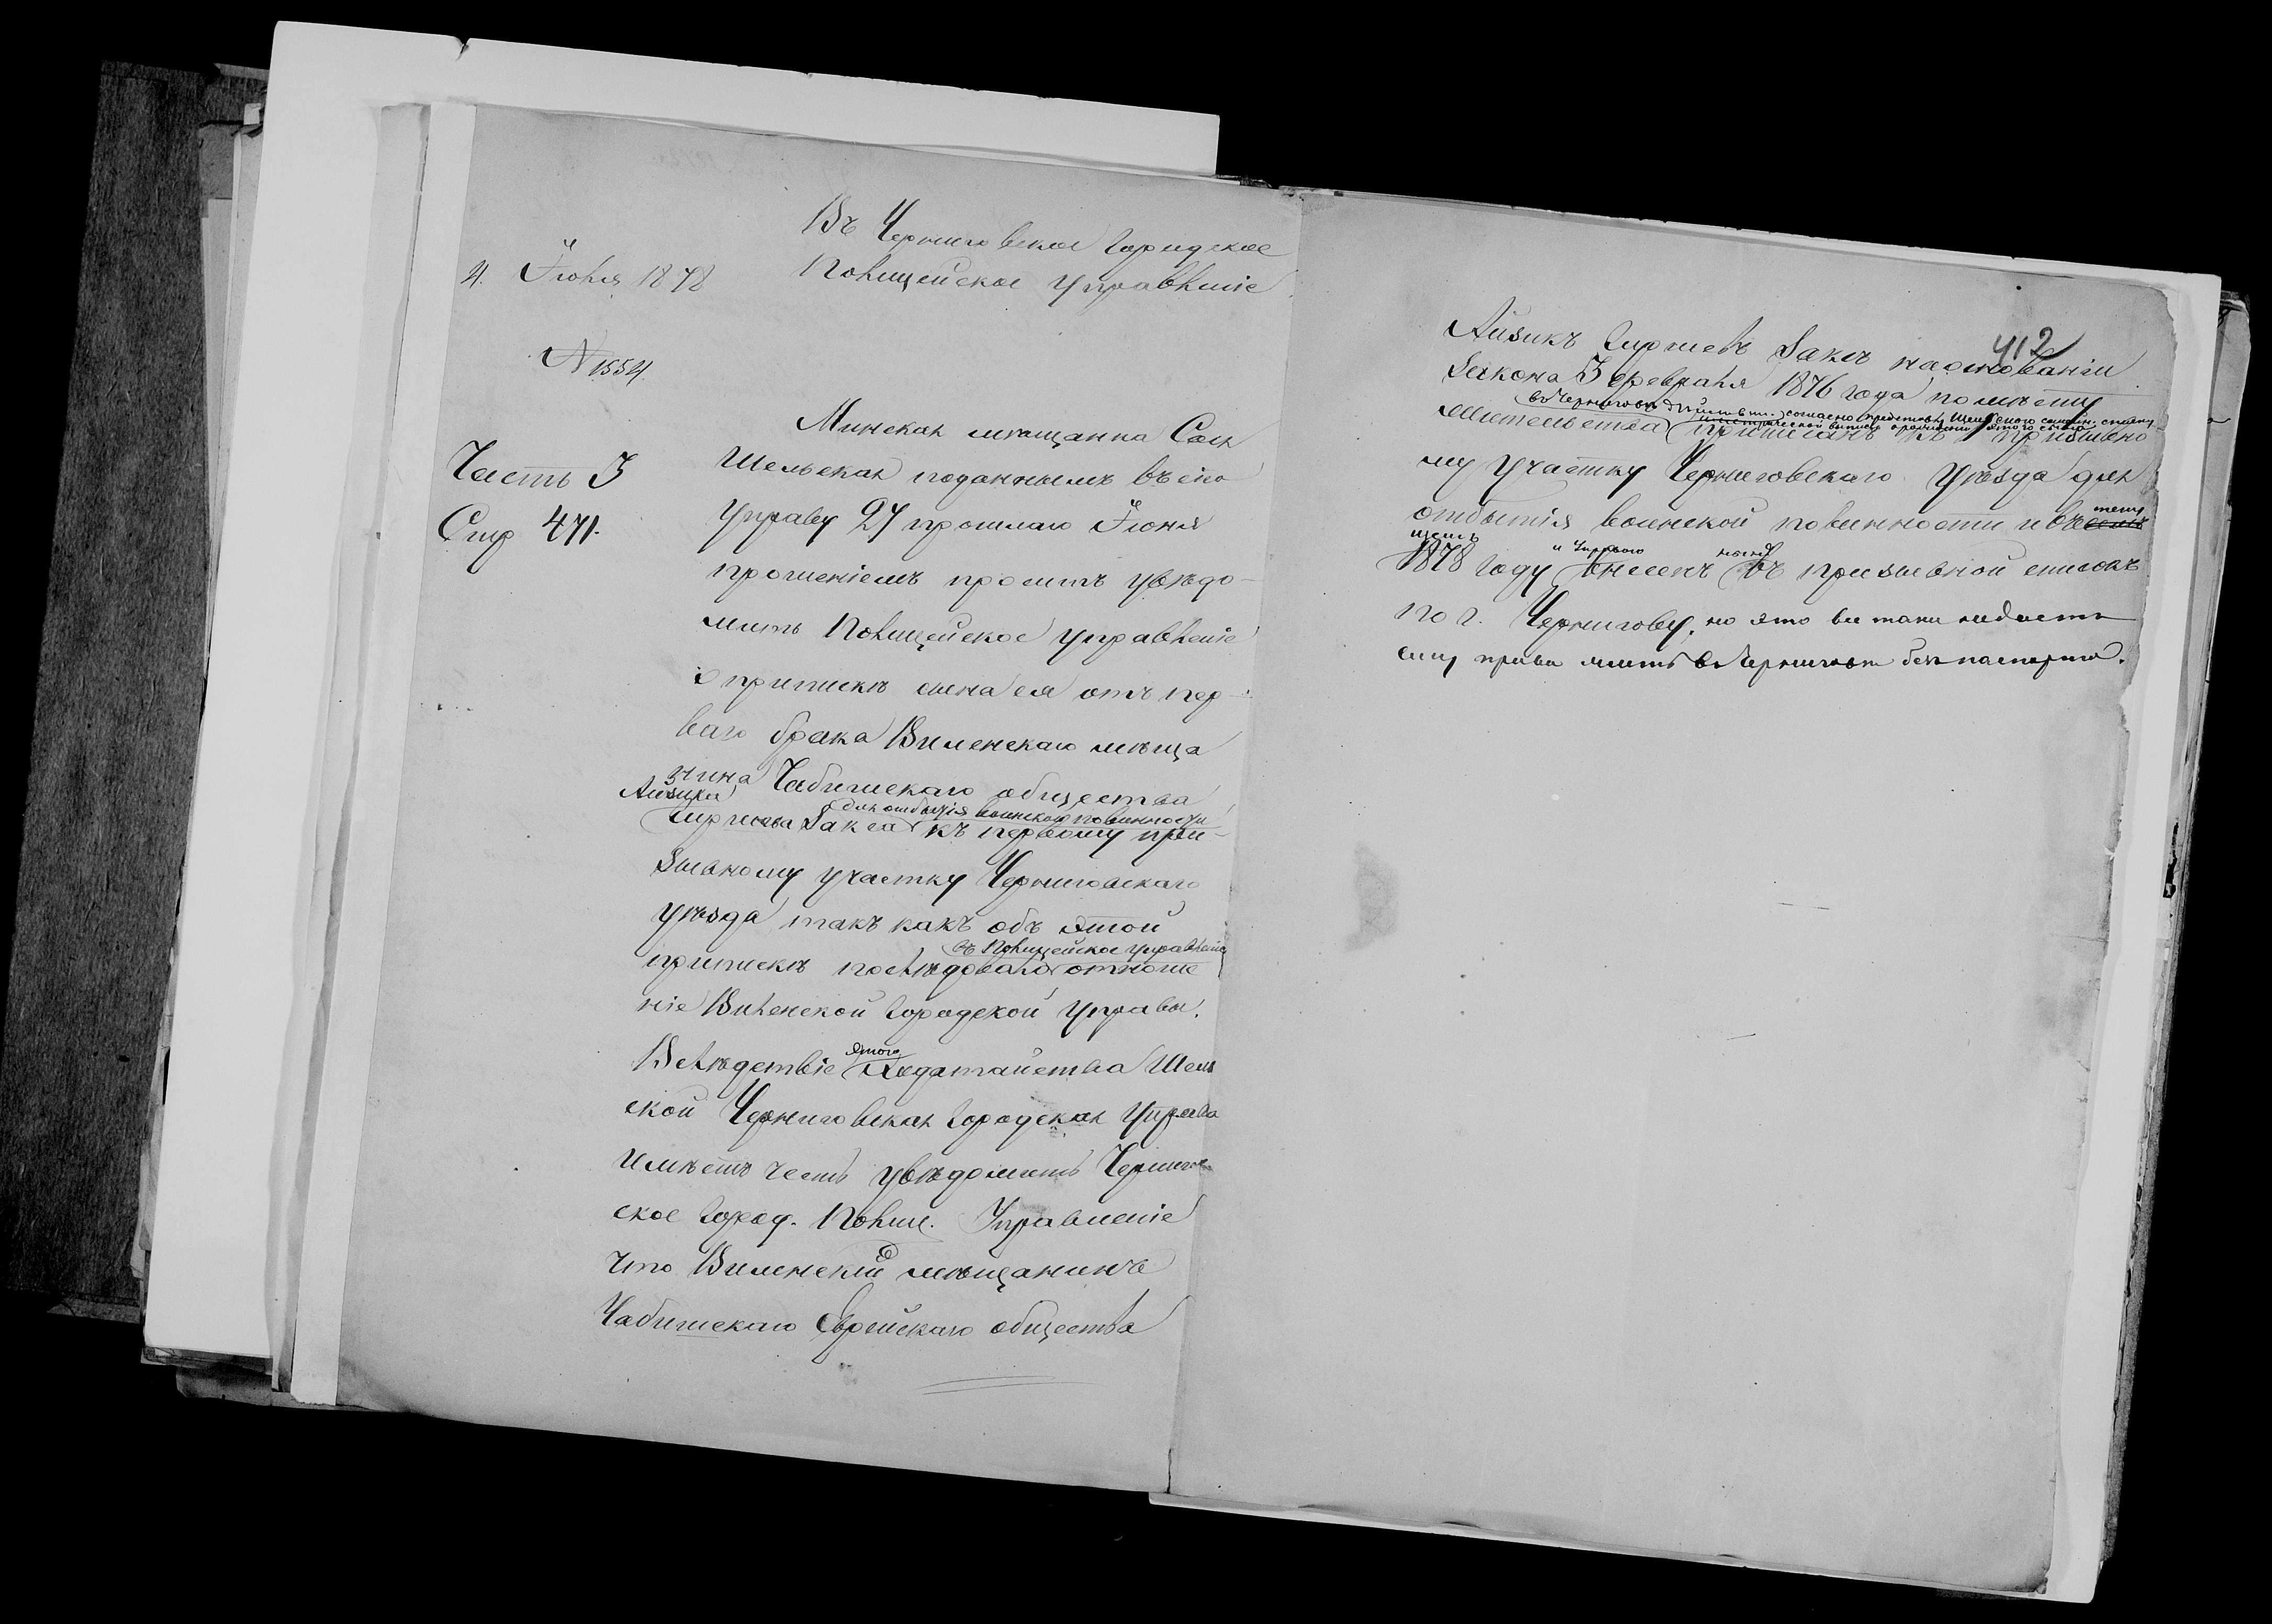 Въ Черниговское Городское
Полицейское Управленіе
4. Іюля 1878
№ 1554
Минская мѣщанка Сося
Шельская поданнымъ въ сію
Управу 27 прошлаго Іюня
прошеніемъ проситъ увѣдо-
мить Полицейское Управленіе
о припискѣ сына ея отъ пер-
ваго брака Виленскаго мѣща
нина Чабишскаго общества
Айзика
для отбытія воинской повинности
Гиршева Закса къ первому при-
зывному участку Черниговскаго
уѣзда такъ какъ объ этой
въ Полицейское Управленіе
припискѣ послѣдовало отноше
ніе Виленской Городской Управы.
этого
Вслѣдствіе ходатайства Шель
ской Черниговская Городская Управа
имѣетъ честь увѣдомить Чернигов
ское Город. Полиц. Управленіе
что Виленскій мѣщанинъ
Чабишскаго Еврейскаго общества
Часть I
Стр 471.
412
Айзикъ Гиршевъ Заксъ на основаніи
Закона 3 Февраля 1876 года по мѣсту
въ Черниговѣ согласно
жительства приписанъ къ 1 призывно
му участку Черниговскаго Уѣзда для
отбытія воинской повинности и въ семъ
теку
щемъ
1878 году внесенъ въ призывной списокъ
по г. Чернигову, но это все таки не даетъ
ему права жить въ Черниговѣ безъ паспорта.